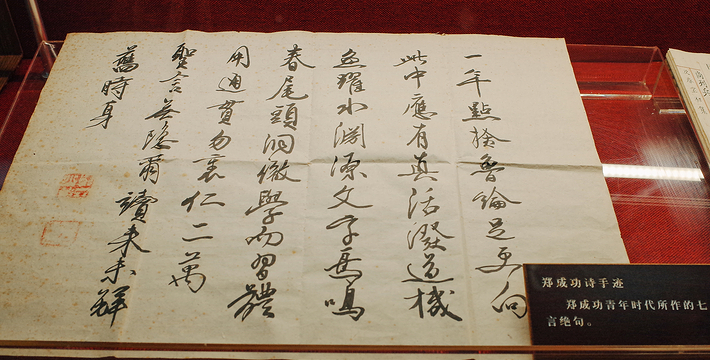 一年點檢魯論足更向
此中應有真活潑道機
魚躍水淵源文字鳥鳴
春尾頭洞徹學而習體
用通貫勿裏仁二萬
聖言無隱爾讀來未解
舊時身
郑成功诗手迹
郑成功青年时代所作的七
言绝句。